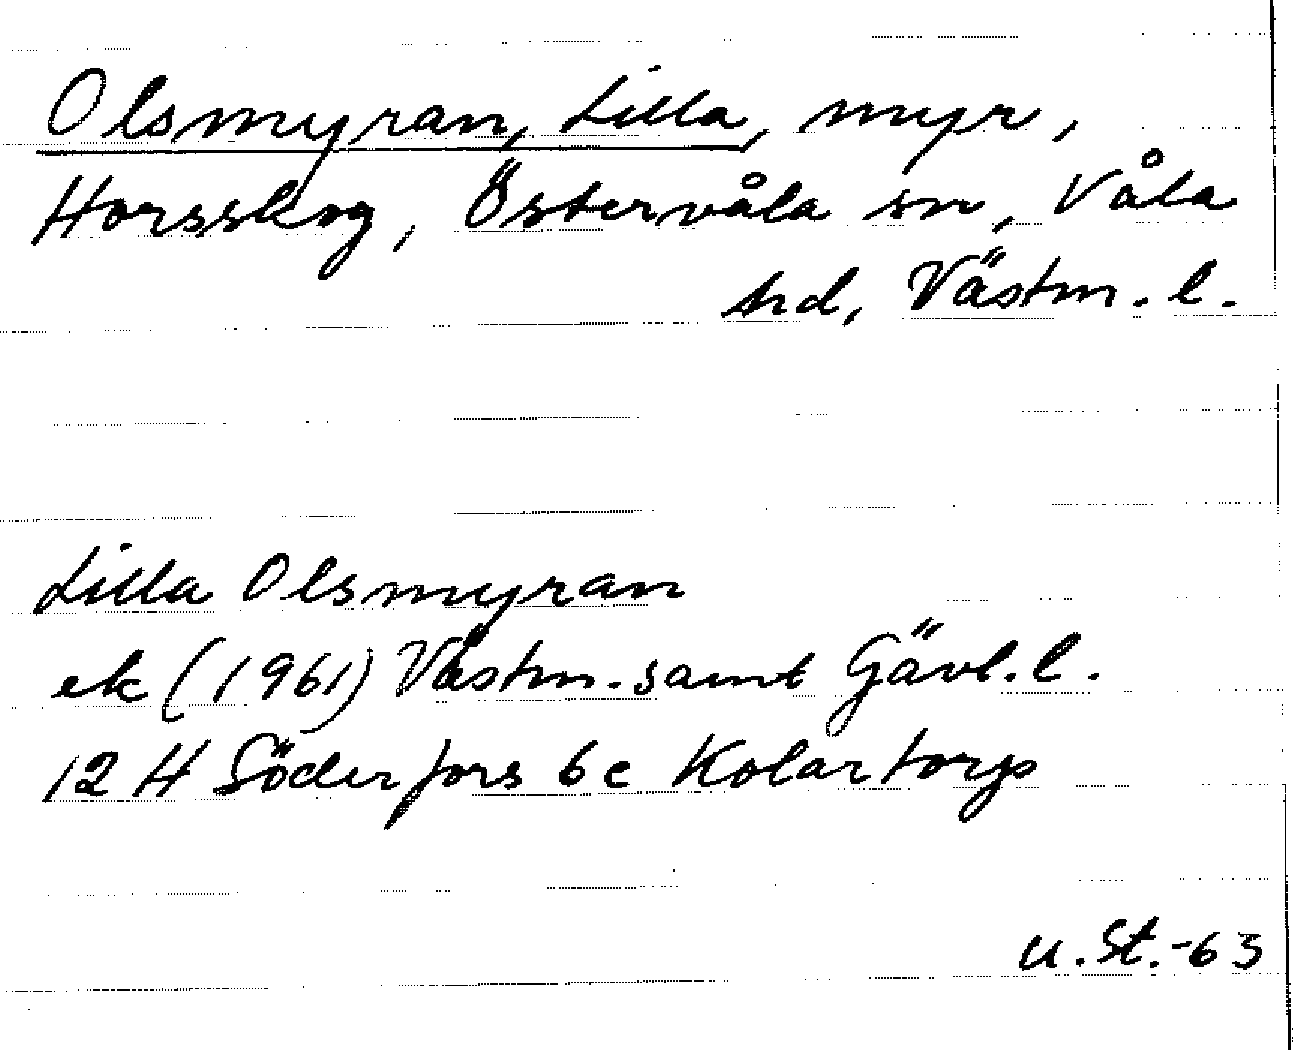 Olsmyran, Lilla, myr,
Horsskog, Östervåla sn, Våla
hd, Västm. l.
Lilla Olsmyran
ek (1961) Västm. samt Gävl. l.
12 H Söderfors 6 c Kolartorp
U. St. -63